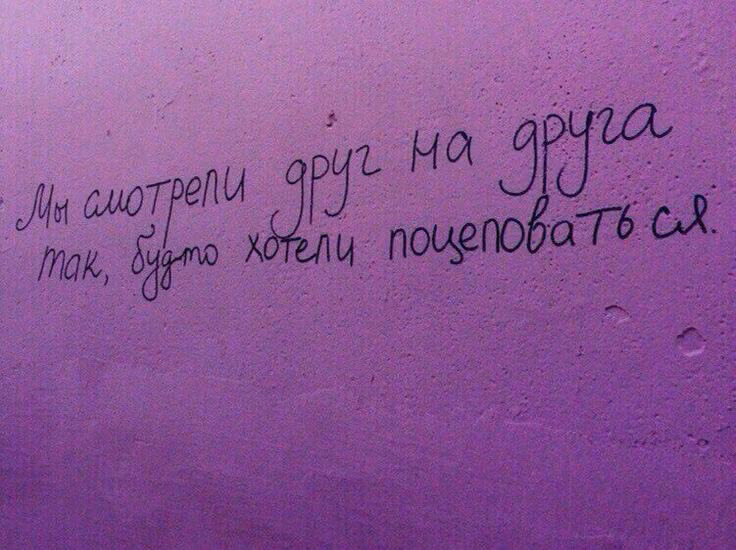 Мы смотрели друг на друга
так, будто хотели поцеловаться.